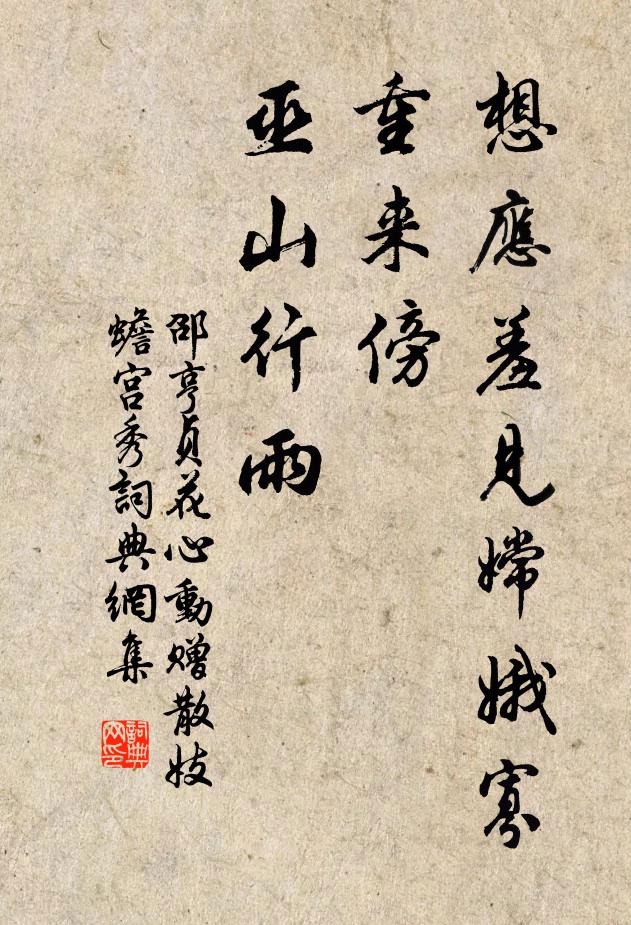 想應羞見嫦娥寡
重来傍
巫山行雨
邵亨貞花心動贈散妓
蟾宮秀詞典網集
詞典网印